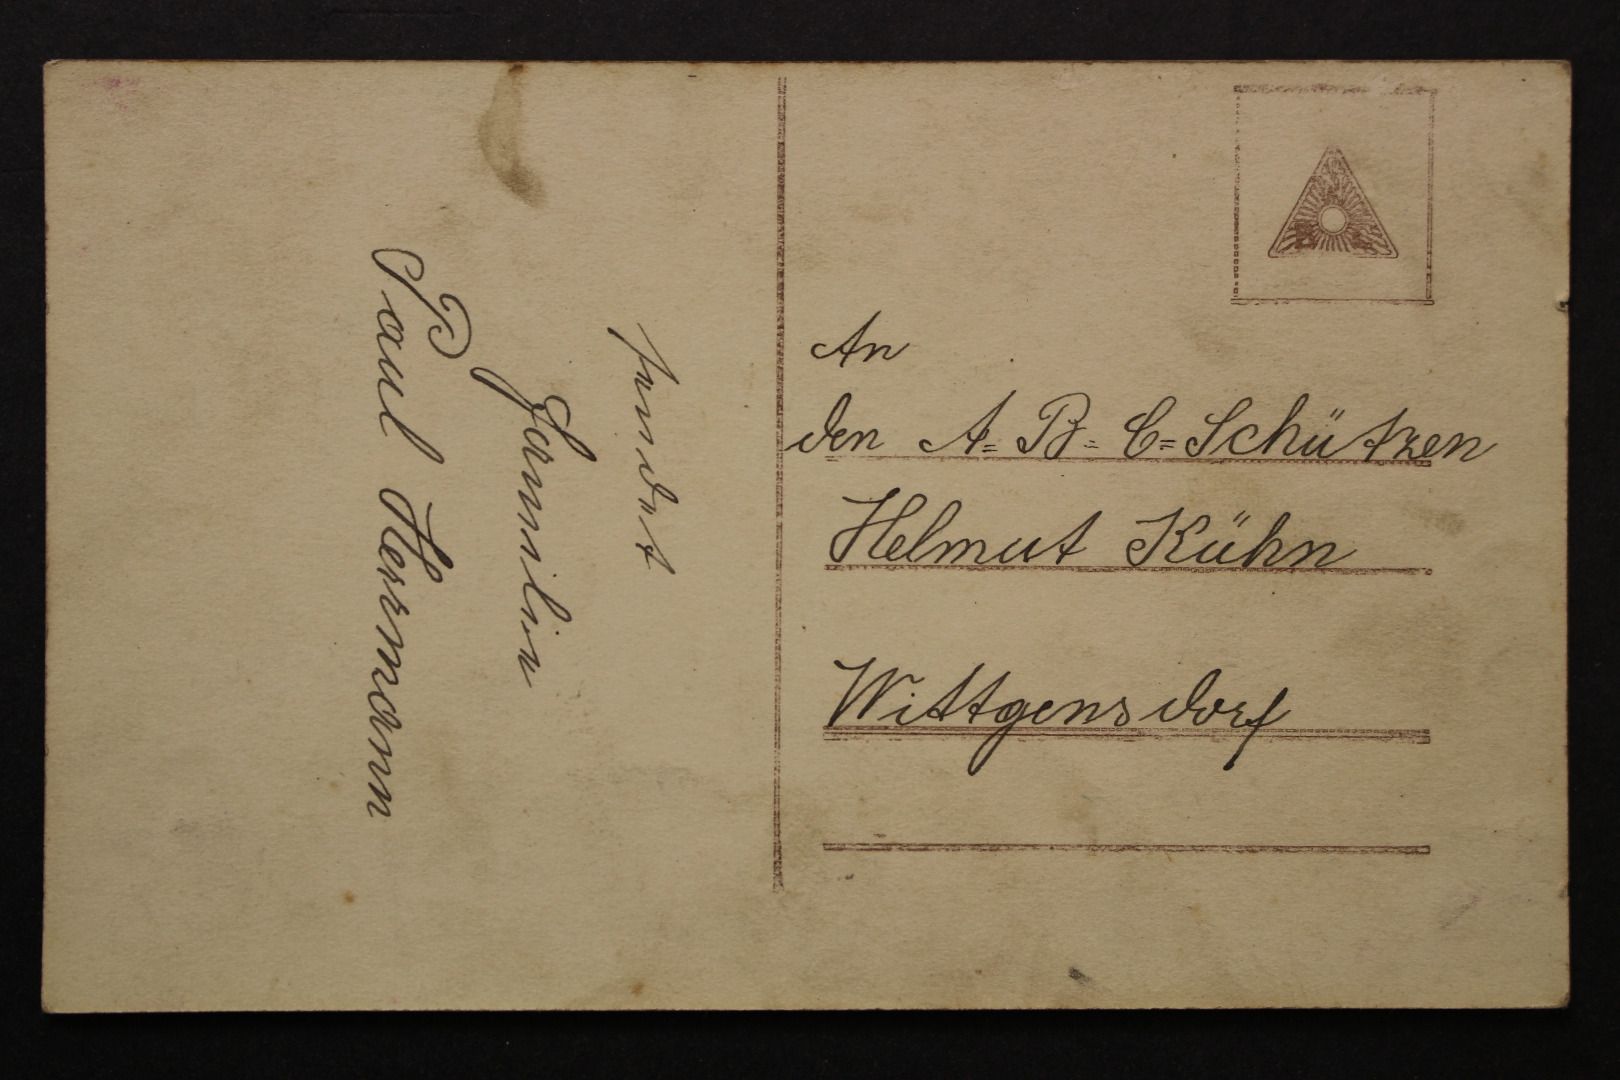 sendet
Familie
Paul Herrmann
An
den A= B= C=Schützen
Helmut Kühn
Wittgensdorf